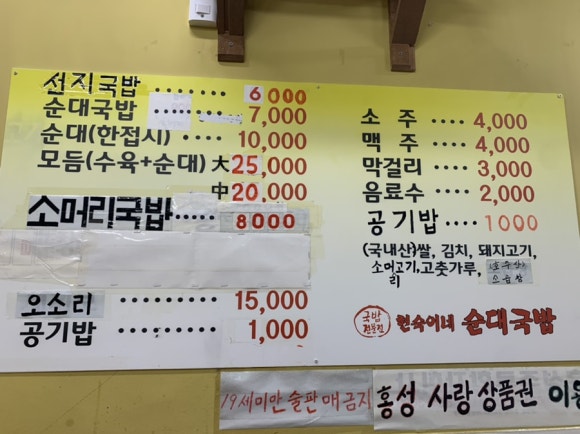 선지국밥 ........ 6000
순대국밥 ........ 7,000
순대(한접시) ..... 10,000
모듬(수육+순대) 大 25,000
中 20,000
소머리국밥..... 8000
오소리 ......... 15,000
공기밥 ......... 1,000
소 주 .... 4,000
맥 주 .... 4,000
막걸리 .... 3,000
음료수 .... 2,000
공기밥 .... 1000
(국내산)쌀, 김치, 돼지고기,
소머리고기, 고춧가루,
국밥
전문점
현숙이네 순대국밥
19세미만 술판매금지
홍성 사랑 상품권 이용